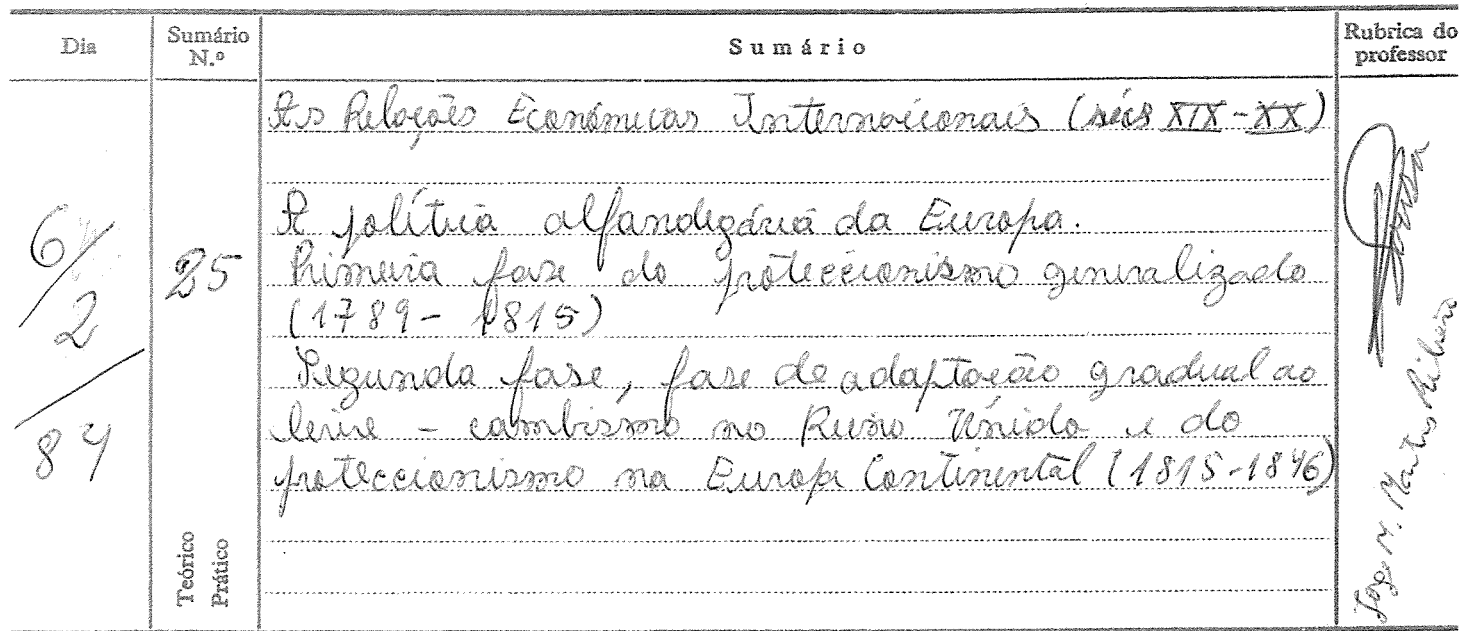 Dia
Sumário N.º
Sumário
Rubrica do professor
6/2/84
25
As Relações Económicas Internacionais (sécs XIX-XX)
A política alfandegária da Europa.
Primeira fase do proteccionismo generalizado
(1789-1815)
Segunda fase, fase de adaptação gradual ao
livre - cambismo no Reino Unido e do
proteccionismo na Europa Continental (1815-1846)
Teórico
Prático